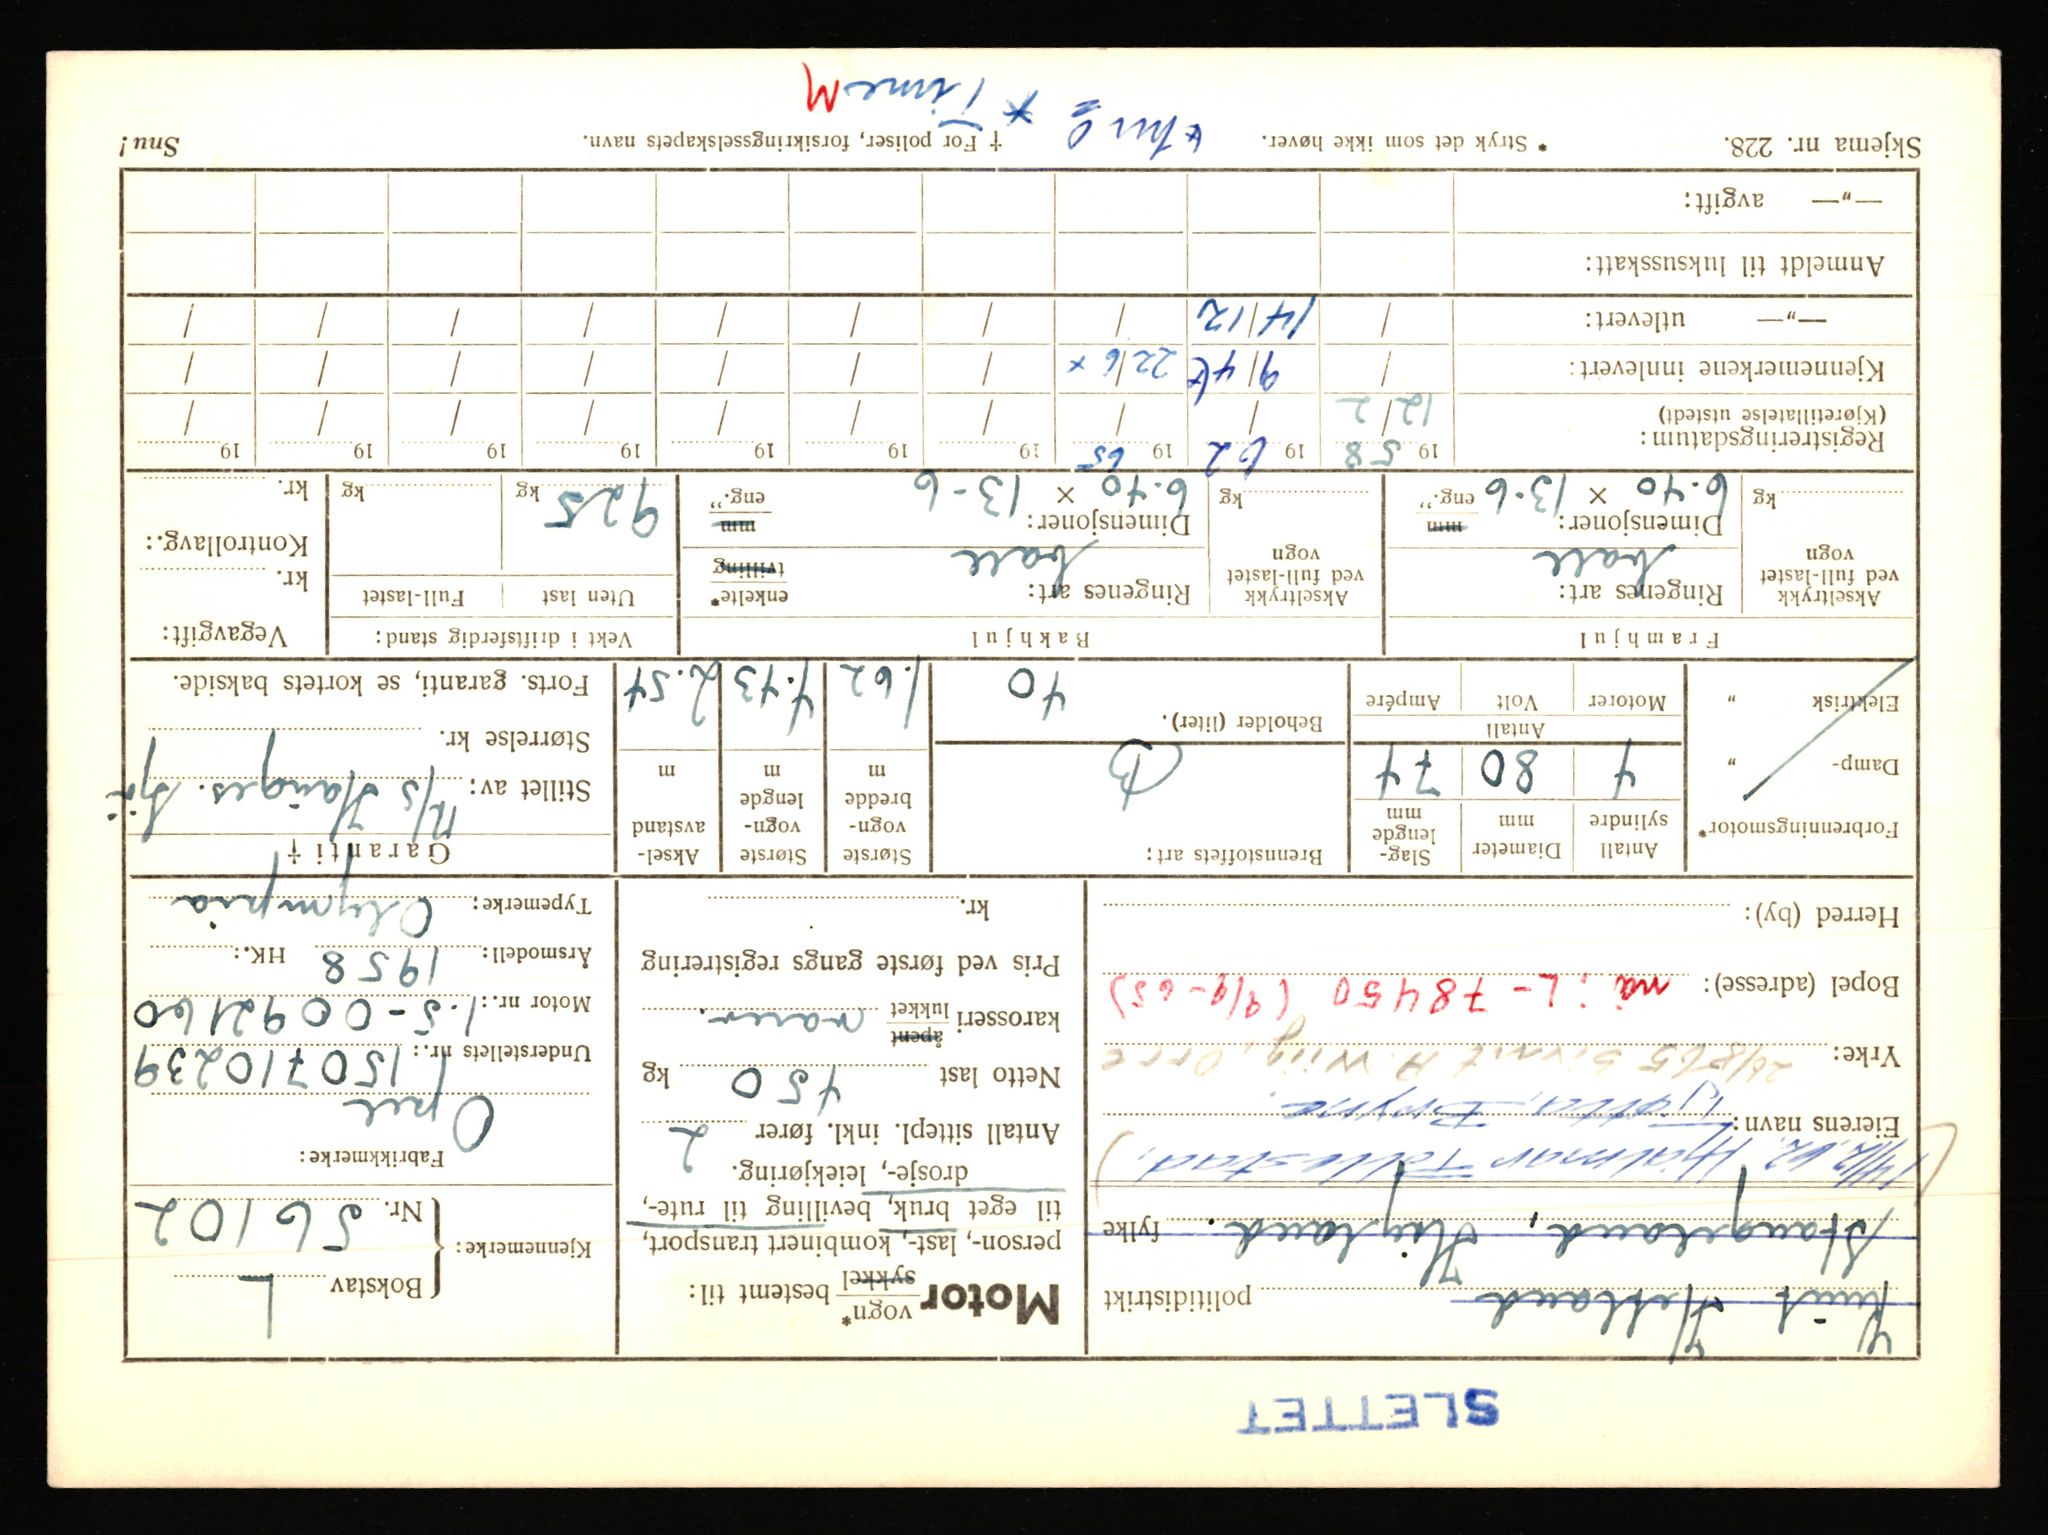 SLETTET
Knut Hetland politidistrikt
Stangeland, Høyland. fylke
(14/12.62. Hjalmar Tollestad,)
Eierens navn: Tjøtta, Bryne.
Yrke: 24/8 65 Sivert A. Wiig, Orre
Bopel (adresse): nå: L-78450 (9/9-65)
Herred (by):
Motor vogn* sykkel bestemt til:
person-, last-, kombinert transport,
til eget bruk, bevilling til rute-,
drosje-, leiekjøring.
Antall sittepl. inkl. fører 2
Netto last 450 kg
karosseri åpent lukket varev.
Pris ved første gangs registrering
kr.
Kjennemerke: { Bokstav L
Nr. 56102
Fabrikkmerke:
Opel
Understellets nr.: 150710239
Motor nr.: 1.5-0092160
Årsmodell: 1958 HK.:
Typemerke: Olympia
Forbrenningsmotor*
Damp- „
Elektrisk „
Antall sylindre 4
Diameter mm 80
Slag-lengde mm 74
Antall
Motorer Volt Ampére
Brennstoffets art: B
Beholder (liter). 40
Største vogn-bredde m 1.62
Største vogn-lengde m 4.43
Aksel-avstand m 2.54
Garanti †
Stillet av: A/S Hauges. Sjø
Størrelse kr.
Forts. garanti, se kortets bakside.
Framhjul
Akseltrykk ved full-lastet vogn kg
Ringenes art: ball
Dimensjoner: mm
6.40 × 13-6 eng.”
Bakhjul
Akseltrykk ved full-lastet vogn kg
Ringenes art: ball enkelte* tvilling
Dimensjoner: mm
6.40 × 13-6 eng.”
Vekt i driftsferdig stand:
Uten last Full-lastet
925 kg kg
Vegavgift:
kr.
Kontrollavg.:
kr.
Registreringsdatum: 19 58 19 62 19 65 19 19 19 19 19 19
(Kjøretillatelse utstedt) 12/2 / / / / / / / /
Kjennemerkene innlevert: / 9/4 22/6 x / / / / / /
—„— utlevert: / 14/12 / / / / / / /
Anmeldt til luksusskatt:
—„— avgift:
Skjema nr. 228. * Stryk det som ikke høver. † For poliser, forsikringsselskapets navn. Snu!
x Time M